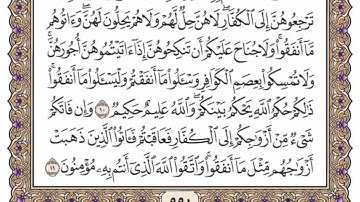 تَرْجِعُوهُنَّ إِلَى ٱلْكُفَّارِ ۖ لَا هُنَّ حِلٌّ لَّهُمْ وَلَا هُمْ يَحِلُّونَ لَهُنَّ ۖ وَءَاتُوهُم
مَّآ أَنفَقُوا۟ ۚ وَلَا جُنَاحَ عَلَيْكُمْ أَن تَنكِحُوهُنَّ إِذَآ ءَاتَيْتُمُوهُنَّ أُجُورَهُنَّ ۚ
وَلَا تُمْسِكُوا۟ بِعِصَمِ ٱلْكَوَافِرِ وَسْـَٔلُوا۟ مَآ أَنفَقْتُمْ وَلْيَسْـَٔلُوا۟ مَآ أَنفَقُوا۟ ۚ
ذَٰلِكُمْ حُكْمُ ٱللَّهِ ۖ يَحْكُمُ بَيْنَكُمْ ۚ وَٱللَّهُ عَلِيمٌ حَكِيمٌ ١٠ وَإِن فَاتَكُمْ
شَىْءٌ مِّنْ أَزْوَٰجِكُمْ إِلَى ٱلْكُفَّارِ فَعَاقَبْتُمْ فَـَٔاتُوا۟ ٱلَّذِينَ ذَهَبَتْ
أَزْوَٰجُهُم مِّثْلَ مَآ أَنفَقُوا۟ ۚ وَٱتَّقُوا۟ ٱللَّهَ ٱلَّذِىٓ أَنتُم بِهِۦ مُؤْمِنُونَ ١١